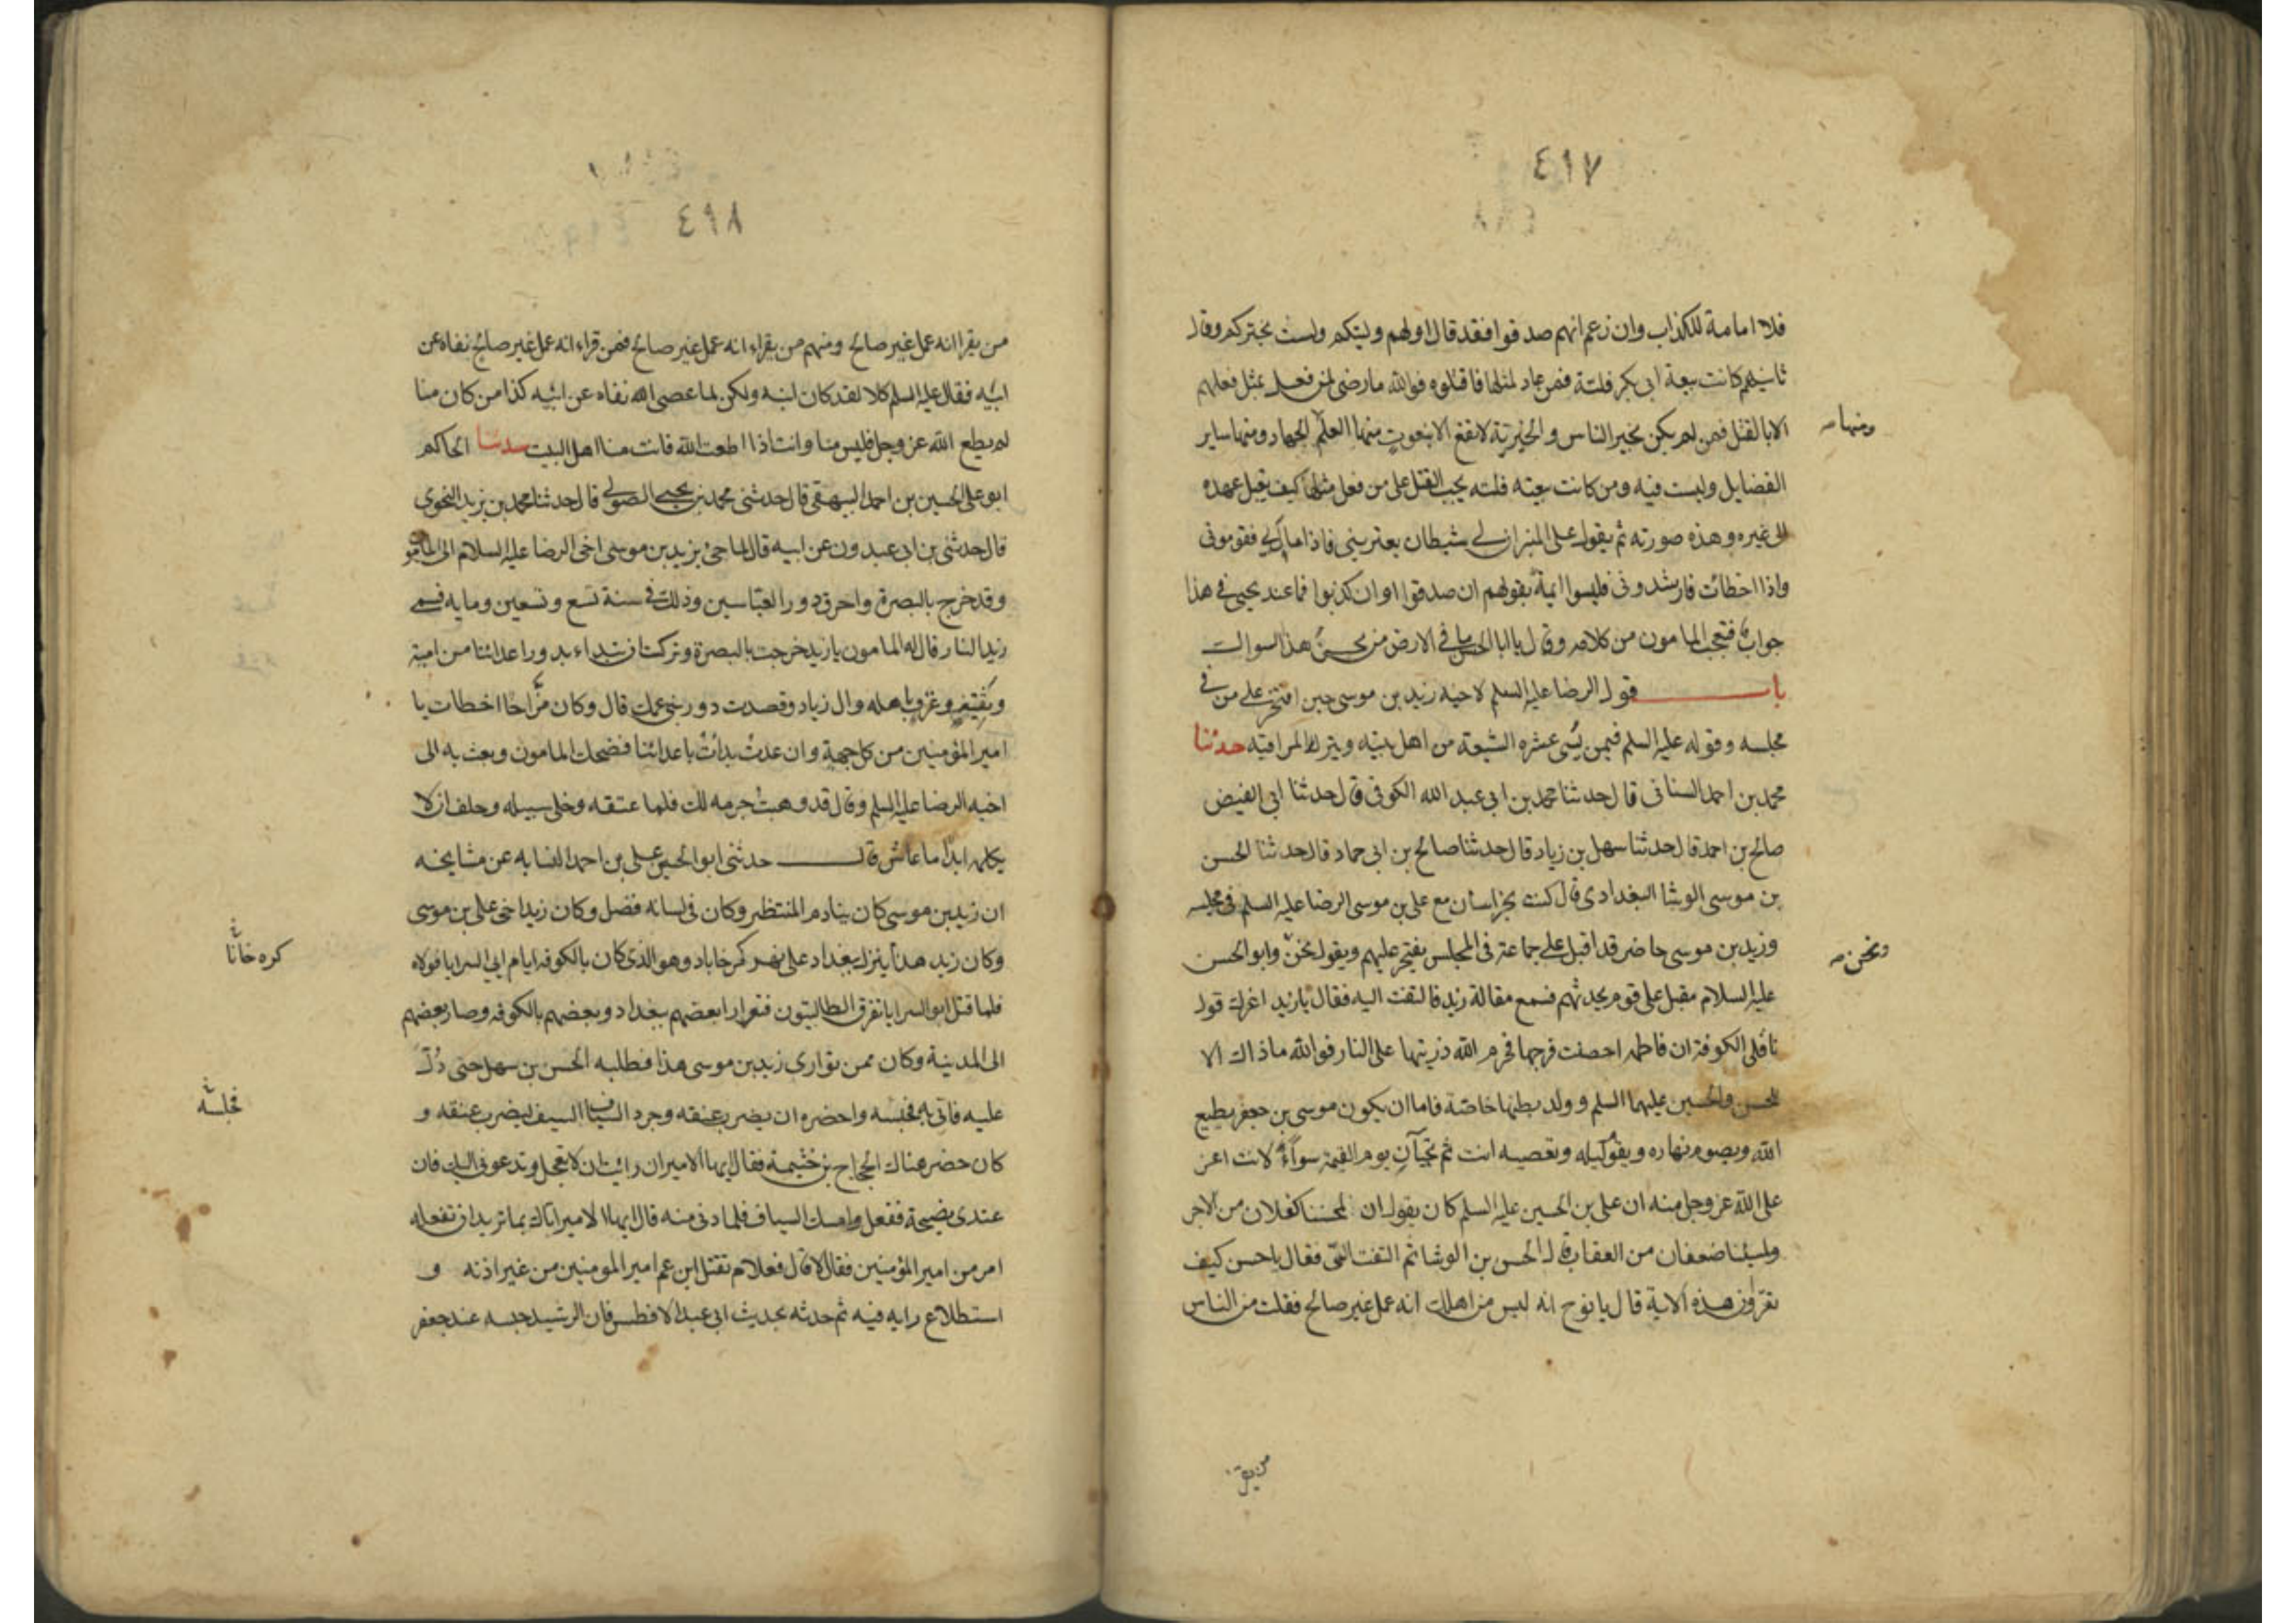 ٤٩٧
فلا امامة للكذاب وان زعم انهم صدقوا فقد قال اولهم وليتكم ولست بخيركم وقال
ثانيهم كانت بيعة ابى بكر فلتة فمن عاد لمثلها فاقتلوه فوالله ما رضى لمن فعل بمثل فعلهم
الا بالقتل فمن لم يكن بخير الناس والخيرية لا تقع الا بنعوت منها العلم الجهاد ومنها ساير
ومنها
الفضايل وليست فيه ومن كانت بيعته فلتة يجب القتل على من فعل مثلها كيف يقبل عهده
الى غيره وهذه صورته ثم يقول على المنبر ان لى شيطان يعترينى فاذا مال بى فقومونى
واذا اخطائت فارشدونى فليسوا ايمة بقولهم ان صدقوا او ان كذبوا فما عند يحيى فى هذا
جواب فتعجب المامون من كلامه وقال يا ابا الحسن ما فى الارض من يحسن هذا سواك
باب قول الرضا عليه السلم لاخيه زيد بن موسى حين افتخر على من فى
مجلسه وقوله عليه السلم فيمن يسى عشره الشيعة من اهل بيته ويترك المراقبة حدثنا
محمد بن احمد السنانى قال حدثنا محمد بن ابى عبد الله الكوفى قال حدثنا ابى الفيض
صالح بن احمد قال حدثنا سهل بن زياد قال حدثنا صالح بن ابى حماد قال حدثنا الحسن
بن موسى الوشا البغدادى قال كنت بخراسان مع على بن موسى الرضا عليه السلم فى مجلسه
وزيد بن موسى حاضر قد اقبل على جماعة فى المجلس يفتخر عليهم ويقول نحن وابو الحسن
ونحن
عليه السلام مقبل على قوم يحدثهم فسمع مقالة زيد فالتفت اليه فقال يا زيد اغرك قول
ناقلى الكوفة ان فاطمه احصنت فرجها فحرم الله ذريتها على النار فوالله ما ذاك الا
للحسن والحسين عليهما السلم وولد بطنها خاصة فاما ان يكون موسى بن جعفر يطيع
الله ويصوم نهاره ويقوم ليله وتعصيه انت ثم تجيآن يوم القيمة سوآء لانت اعز
على الله عز وجل منه ان على بن الحسين عليه السلم كان يقول ان لمحسننا كفلان من الاجر
ولمسيئنا ضعفان من العقاب قال الحسن بن الوشا ثم التفت الىّ فقال يا حسن كيف
تقرؤن هذه الاية قال يا نوح انه ليس من اهلك انه عمل غير صالح فقلت من الناس
من يقرا
٤٩٨
من يقرا انه عمل غير صالح ومنهم من يقراء انه عمل غير صالح فمن قراء انه عمل غير صالح نفاه عن
ابيه فقال عليه السلم كلا لقد كان ابنه ولكن لما عصى الله نفاه عن ابيه كذا من كان منا
لم يطع الله عز وجل فليس منا وانت اذا اطعت الله فانت منا اهل البيت حدثنا الحاكم
ابو على الحسين بن احمد البيهقى قال حدثنى محمد بن يحيى الصولى قال حدثنا محمد بن يزيد النحوى
قال حدثنى بن ابى عبدون عن ابيه قال لما جئ بزيد بن موسى اخى الرضا عليه السلام الى المامون
وقد خرج بالبصرة واحرق دور العباسين وذلك فى سنة تسع وتسعين ومايه فسمى
زيد النار قال له المامون يا زيد خرجت بالبصرة وتركت ان تبداء بدور اعدائنا من امية
وثقيف وغنى وباهله وال زياد وقصدت دور بنى عمك قال وكان مزاحا اخطات يا
امير المؤمنين من كل جهة وان عدت بدات باعدائنا فضحك المامون وبعث به الى
اخيه الرضا عليه السلم وقال قد وهبت جرمه لك فلما عتقه وخلى سبيله وحلف ان لا
يكلمه ابدا ما عاش قال حدثنى ابو الحسين على بن احمد النسابه عن مشايخه
ان زيد بن موسى كان ينادم المنتظر وكان فى لسانه فضل وكان زيد اخى على بن موسى
وكان زيد هذا ينزل بغداد على نهر كرخاباد وهو الذى كان بالكوفه ايام ابى السرايا فولاه
كره خانا
فلما قتل ابو السرايا تفرق الطالبيون فتوارا بعضهم ببغداد وبعضهم بالكوفه وصار بعضهم
الى المدينة وكان ممن توارى زيد بن موسى هذا فطلبه الحسن بن سهل حتى دُلّ
عليه فاتى به فحبسه واحضره ان يضرب عنقه وجرد السياف السيف ليضرب عنقه و
كان حضر هناك الحجاج بن خثيمة فقال ايها الامير ان رايت ان لا تعجل وتدعونى اليك فان
عندى نصيحة ففعل وامسك السياف فلما دنى منه قال ايها الامير اتاك بما تريد ان تفعله
امر من امير المؤمنين فقال لا قال فعلام تقتل ابن عم امير المومنين من غير اذنه و
استطلاع رايه فيه ثم حدثه بحديث ابى عبد الله الافطس فان الرشيد حبسه عند جعفر